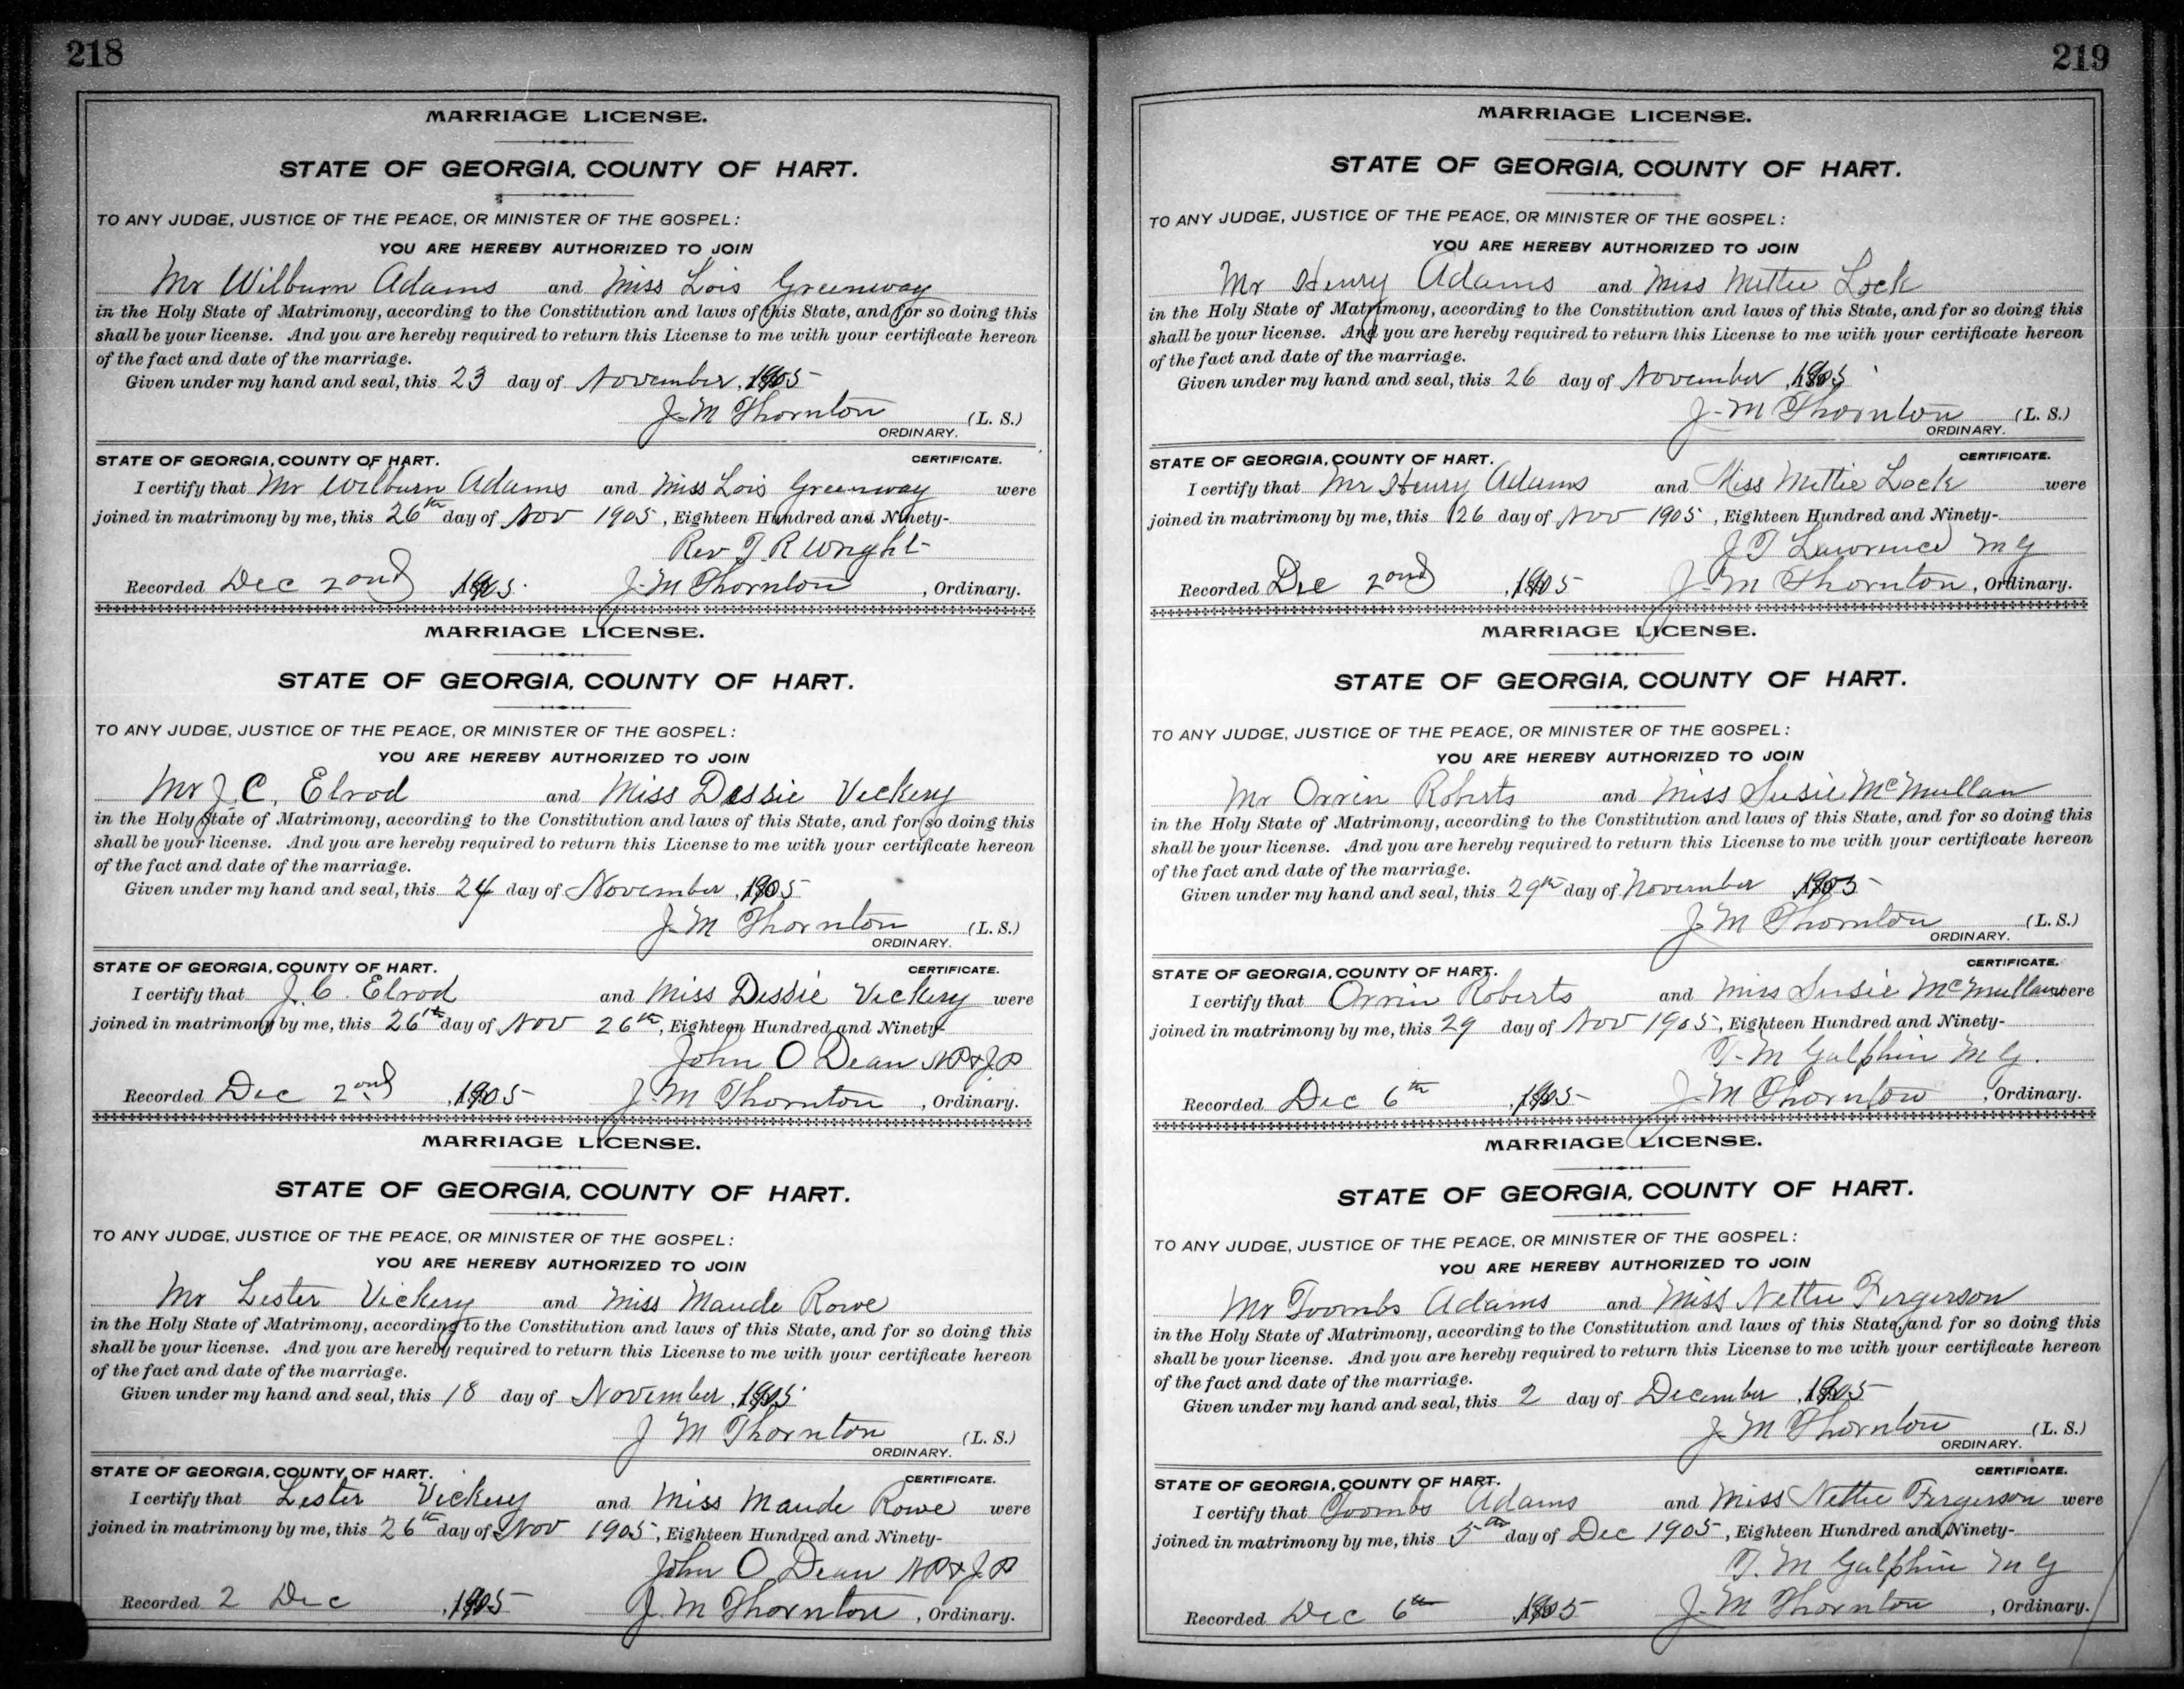 218
MARRIAGE LICENSE.
STATE OF GEORGIA, COUNTY OF HART.
TO ANY JUDGE, JUSTICE OF THE PEACE, OR MINISTER OF THE GOSPEL:
YOU ARE HEREBY AUTHORIZED TO JOIN
Mr Wilburn Adams and Miss Lois Greenway
in the Holy State of Matrimony, according to the Constitution and laws of this State, and for so doing this
shall be your license. And you are hereby required to return this License to me with your certificate hereon
of the fact and date of the marriage.
Given under my hand and seal, this 23 day of November, 1905
J. M Thornton (L. S.)
ORDINARY.
STATE OF GEORGIA, COUNTY OF HART. CERTIFICATE.
I certify that Mr Wilburn Adams and Miss Lois Greenway were
joined in matrimony by me, this 26th day of Nov 1905, Eighteen Hundred and Ninety-
Rev T. R Wright
Recorded Dec 2nd 1905. J. M Thornton, Ordinary.
MARRIAGE LICENSE.
STATE OF GEORGIA, COUNTY OF HART.
TO ANY JUDGE, JUSTICE OF THE PEACE, OR MINISTER OF THE GOSPEL:
YOU ARE HEREBY AUTHORIZED TO JOIN
Mr J. C. Elrod and Miss Dessie Vickery
in the Holy State of Matrimony, according to the Constitution and laws of this State, and for so doing this
shall be your license. And you are hereby required to return this License to me with your certificate hereon
of the fact and date of the marriage.
Given under my hand and seal, this 24 day of November, 1905
J. M Thornton (L. S.)
ORDINARY.
STATE OF GEORGIA, COUNTY OF HART. CERTIFICATE.
I certify that J. C. Elrod and Miss Dessie Vickery were
joined in matrimony by me, this 26th day of Nov 26th, Eighteen Hundred and Ninety-
John O Dean NP & JP
Recorded Dec 2nd, 1905 J. M Thornton, Ordinary.
MARRIAGE LICENSE.
STATE OF GEORGIA, COUNTY OF HART.
TO ANY JUDGE, JUSTICE OF THE PEACE, OR MINISTER OF THE GOSPEL:
YOU ARE HEREBY AUTHORIZED TO JOIN
Mr Lester Vickery and Miss Maude Rowe
in the Holy State of Matrimony, according to the Constitution and laws of this State, and for so doing this
shall be your license. And you are hereby required to return this License to me with your certificate hereon
of the fact and date of the marriage.
Given under my hand and seal, this 18 day of November, 1905
J M Thornton (L. S.)
ORDINARY.
STATE OF GEORGIA, COUNTY OF HART. CERTIFICATE.
I certify that Lester Vickery and Miss Maude Rowe were
joined in matrimony by me, this 26th day of Nov 1905, Eighteen Hundred and Ninety-
John O. Dean NP & JP
Recorded 2 Dec, 1905 J. M Thornton, Ordinary.
219
MARRIAGE LICENSE.
STATE OF GEORGIA, COUNTY OF HART.
TO ANY JUDGE, JUSTICE OF THE PEACE, OR MINISTER OF THE GOSPEL:
YOU ARE HEREBY AUTHORIZED TO JOIN
Mr Henry Adams and Miss Mittie Lock
in the Holy State of Matrimony, according to the Constitution and laws of this State, and for so doing this
shall be your license. And you are hereby required to return this License to me with your certificate hereon
of the fact and date of the marriage.
Given under my hand and seal, this 26 day of November, 1905
J. M Thornton (L. S.)
ORDINARY.
STATE OF GEORGIA, COUNTY OF HART. CERTIFICATE.
I certify that Mr Henry Adams and Miss Mittie Lock were
joined in matrimony by me, this 26 day of Nov 1905, Eighteen Hundred and Ninety-
J T Lawrence M G
Recorded Dec 2nd, 1905 J. M Thornton, Ordinary.
MARRIAGE LICENSE.
STATE OF GEORGIA, COUNTY OF HART.
TO ANY JUDGE, JUSTICE OF THE PEACE, OR MINISTER OF THE GOSPEL:
YOU ARE HEREBY AUTHORIZED TO JOIN
Mr Orrin Roberts and Miss Susie McMullan
in the Holy State of Matrimony, according to the Constitution and laws of this State, and for so doing this
shall be your license. And you are hereby required to return this License to me with your certificate hereon
of the fact and date of the marriage.
Given under my hand and seal, this 29th day of November 1905
J. M Thornton (L. S.)
ORDINARY.
STATE OF GEORGIA, COUNTY OF HART. CERTIFICATE.
I certify that Orrin Roberts and Miss Susie McMullan were
joined in matrimony by me, this 29 day of Nov 1905, Eighteen Hundred and Ninety-
T. M Galphin M G.
Recorded Dec 6th, 1905 J. M Thornton, Ordinary.
MARRIAGE LICENSE.
STATE OF GEORGIA, COUNTY OF HART.
TO ANY JUDGE, JUSTICE OF THE PEACE, OR MINISTER OF THE GOSPEL:
YOU ARE HEREBY AUTHORIZED TO JOIN
Mr Toombs Adams and Miss Nettie Fergerson
in the Holy State of Matrimony, according to the Constitution and laws of this State, and for so doing this
shall be your license. And you are hereby required to return this License to me with your certificate hereon
of the fact and date of the marriage.
Given under my hand and seal, this 2 day of December, 1905
J. M Thornton (L. S.)
ORDINARY.
STATE OF GEORGIA, COUNTY OF HART. CERTIFICATE.
I certify that Toombs Adams and Miss Nettie Fergerson were
joined in matrimony by me, this 5th day of Dec 1905, Eighteen Hundred and Ninety-
T. M Galphin M G
Recorded Dec 6th 1905 J. M Thornton, Ordinary.